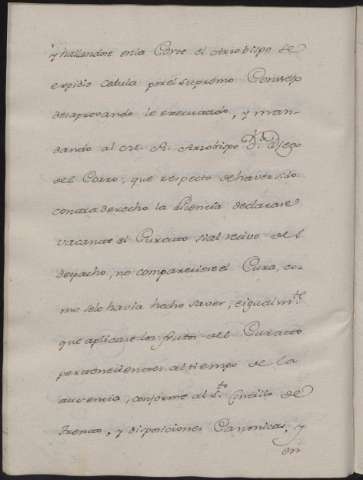 y hallandose en la Corte el Arzobispo se
expidio cedula por el supremo Consejo
desaprovando lo executado, y man-
dando al M. R. Arzobispo Dn. Diego
del Corro, que respecto de haver sido
contra derecho la lisencia declarase
vacante el Curato si al recivo del
despacho, no compareciese el Cura, co-
mo se le havia hecho saver, e igualmte.
que aplicase los frutos del Curato
pertenecientes al tiempo de la
ausencia, conforme al Sto. Concilio de
Trento, y disposiciones Canonicas, y
en